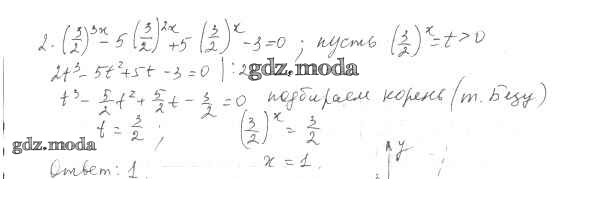 2. (3/2)^3x - 5(3/2)^2x + 5(3/2)^x - 3 = 0 ; пусть (3/2)^x = t > 0
2t³ - 5t² + 5t - 3 = 0 | : 2 gdz.moda
t³ - 5/2 t² + 5/2 t - 3/2 = 0 подбираем корень (т. Безу)
t = 3/2 ; (3/2)^x = 3/2
gdz.moda
x = 1. y
Ответ: 1.